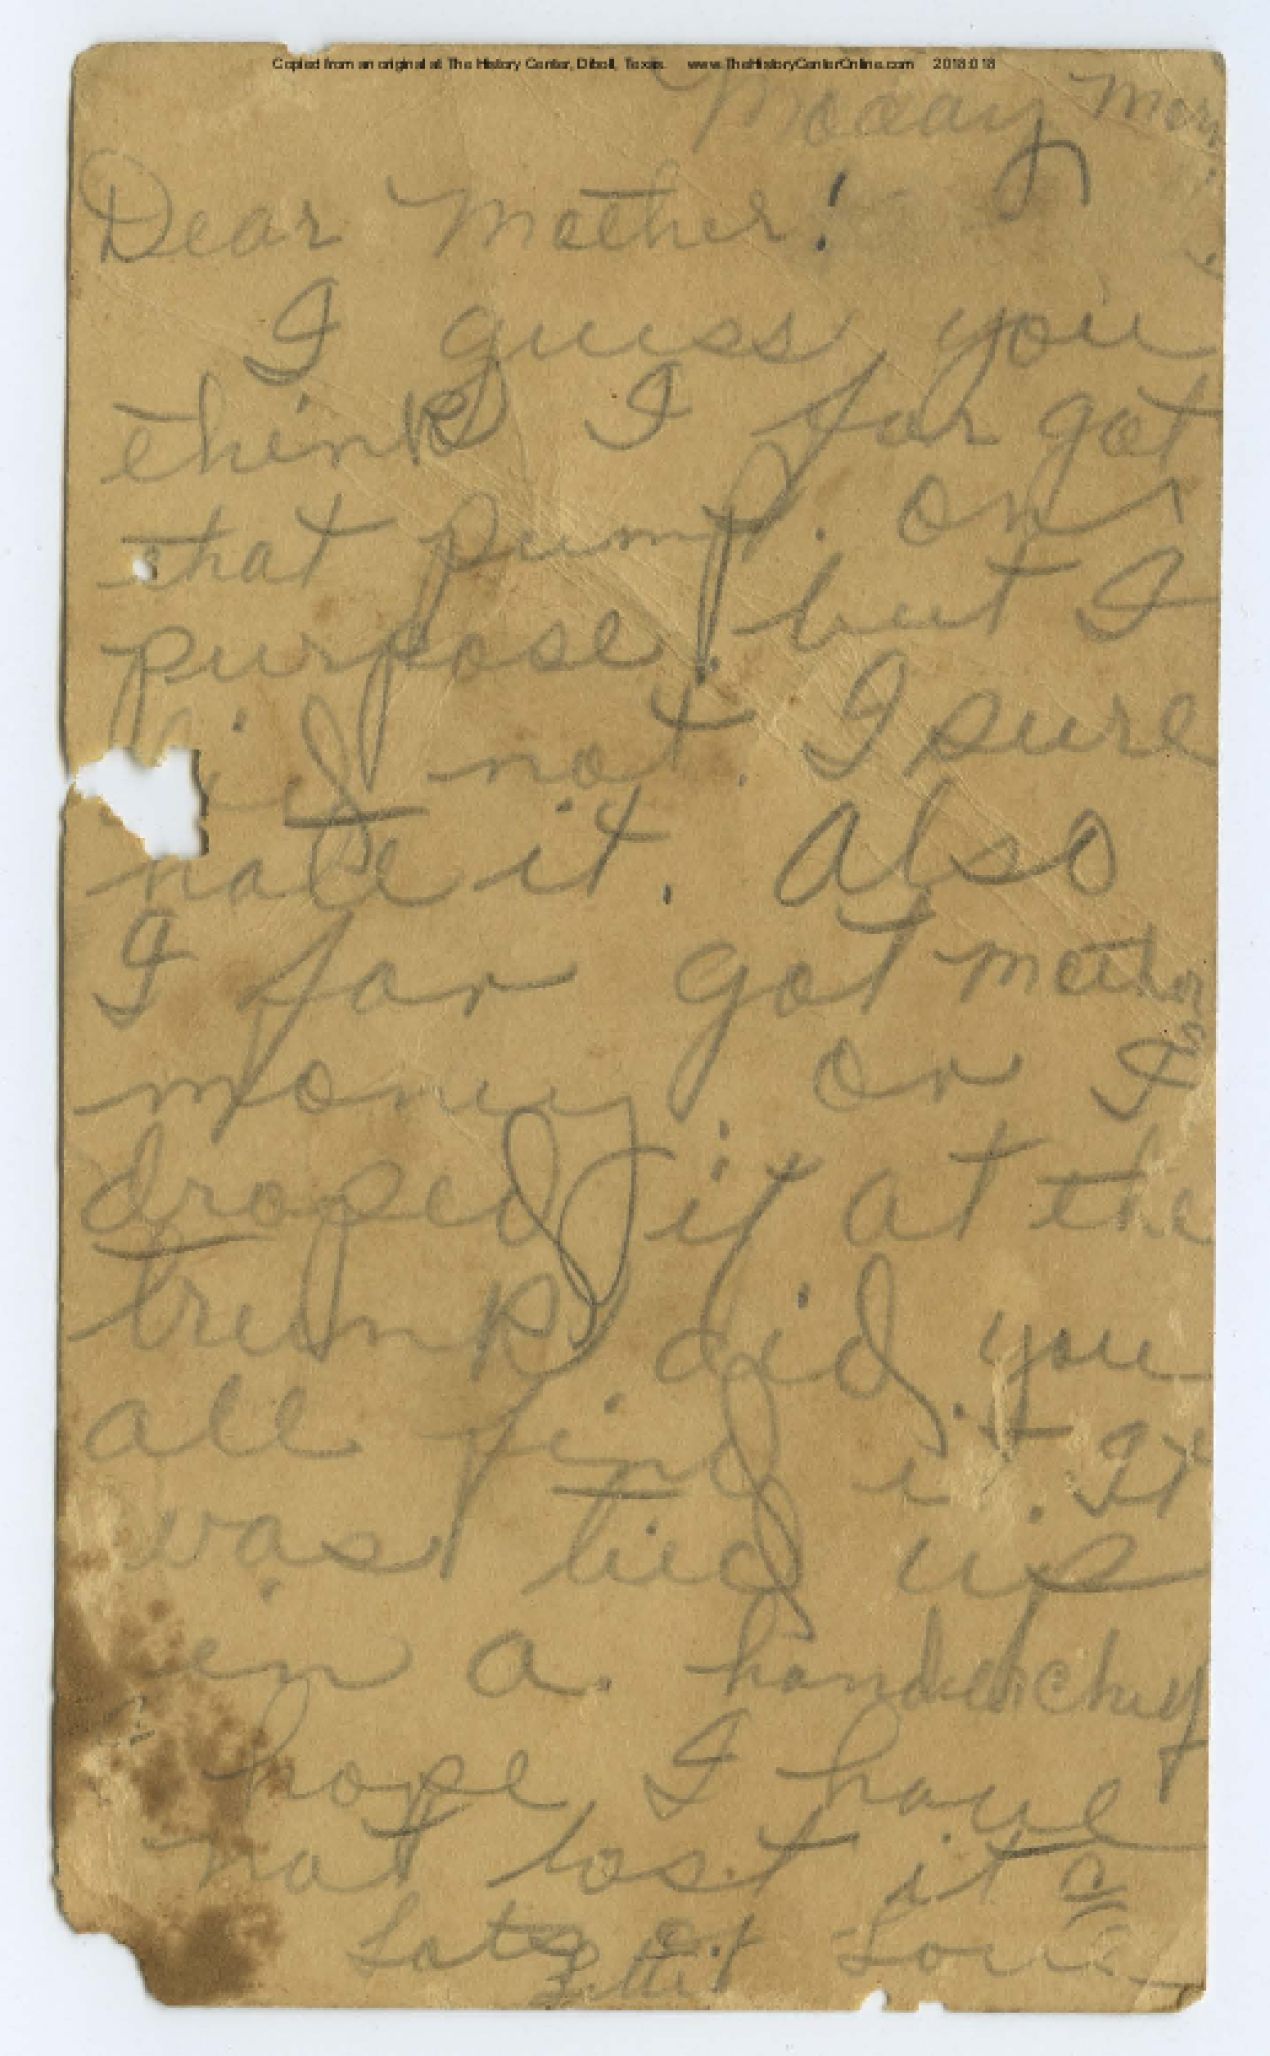 Copied from an original at The History Center, Diboll, Texas. www.TheHistoryCenterOnline.com 2018:018
Moday Morn
Dear Mother!
I guess you
think I for got
that pump. on
purpose, but I
did not. I sure
hate it. Also
I for got Mother's
money or I
droped it at the
trunk, did you
all find it. It
was tied up
in a handkerchief
hope I have
not lost it
Lots of Love